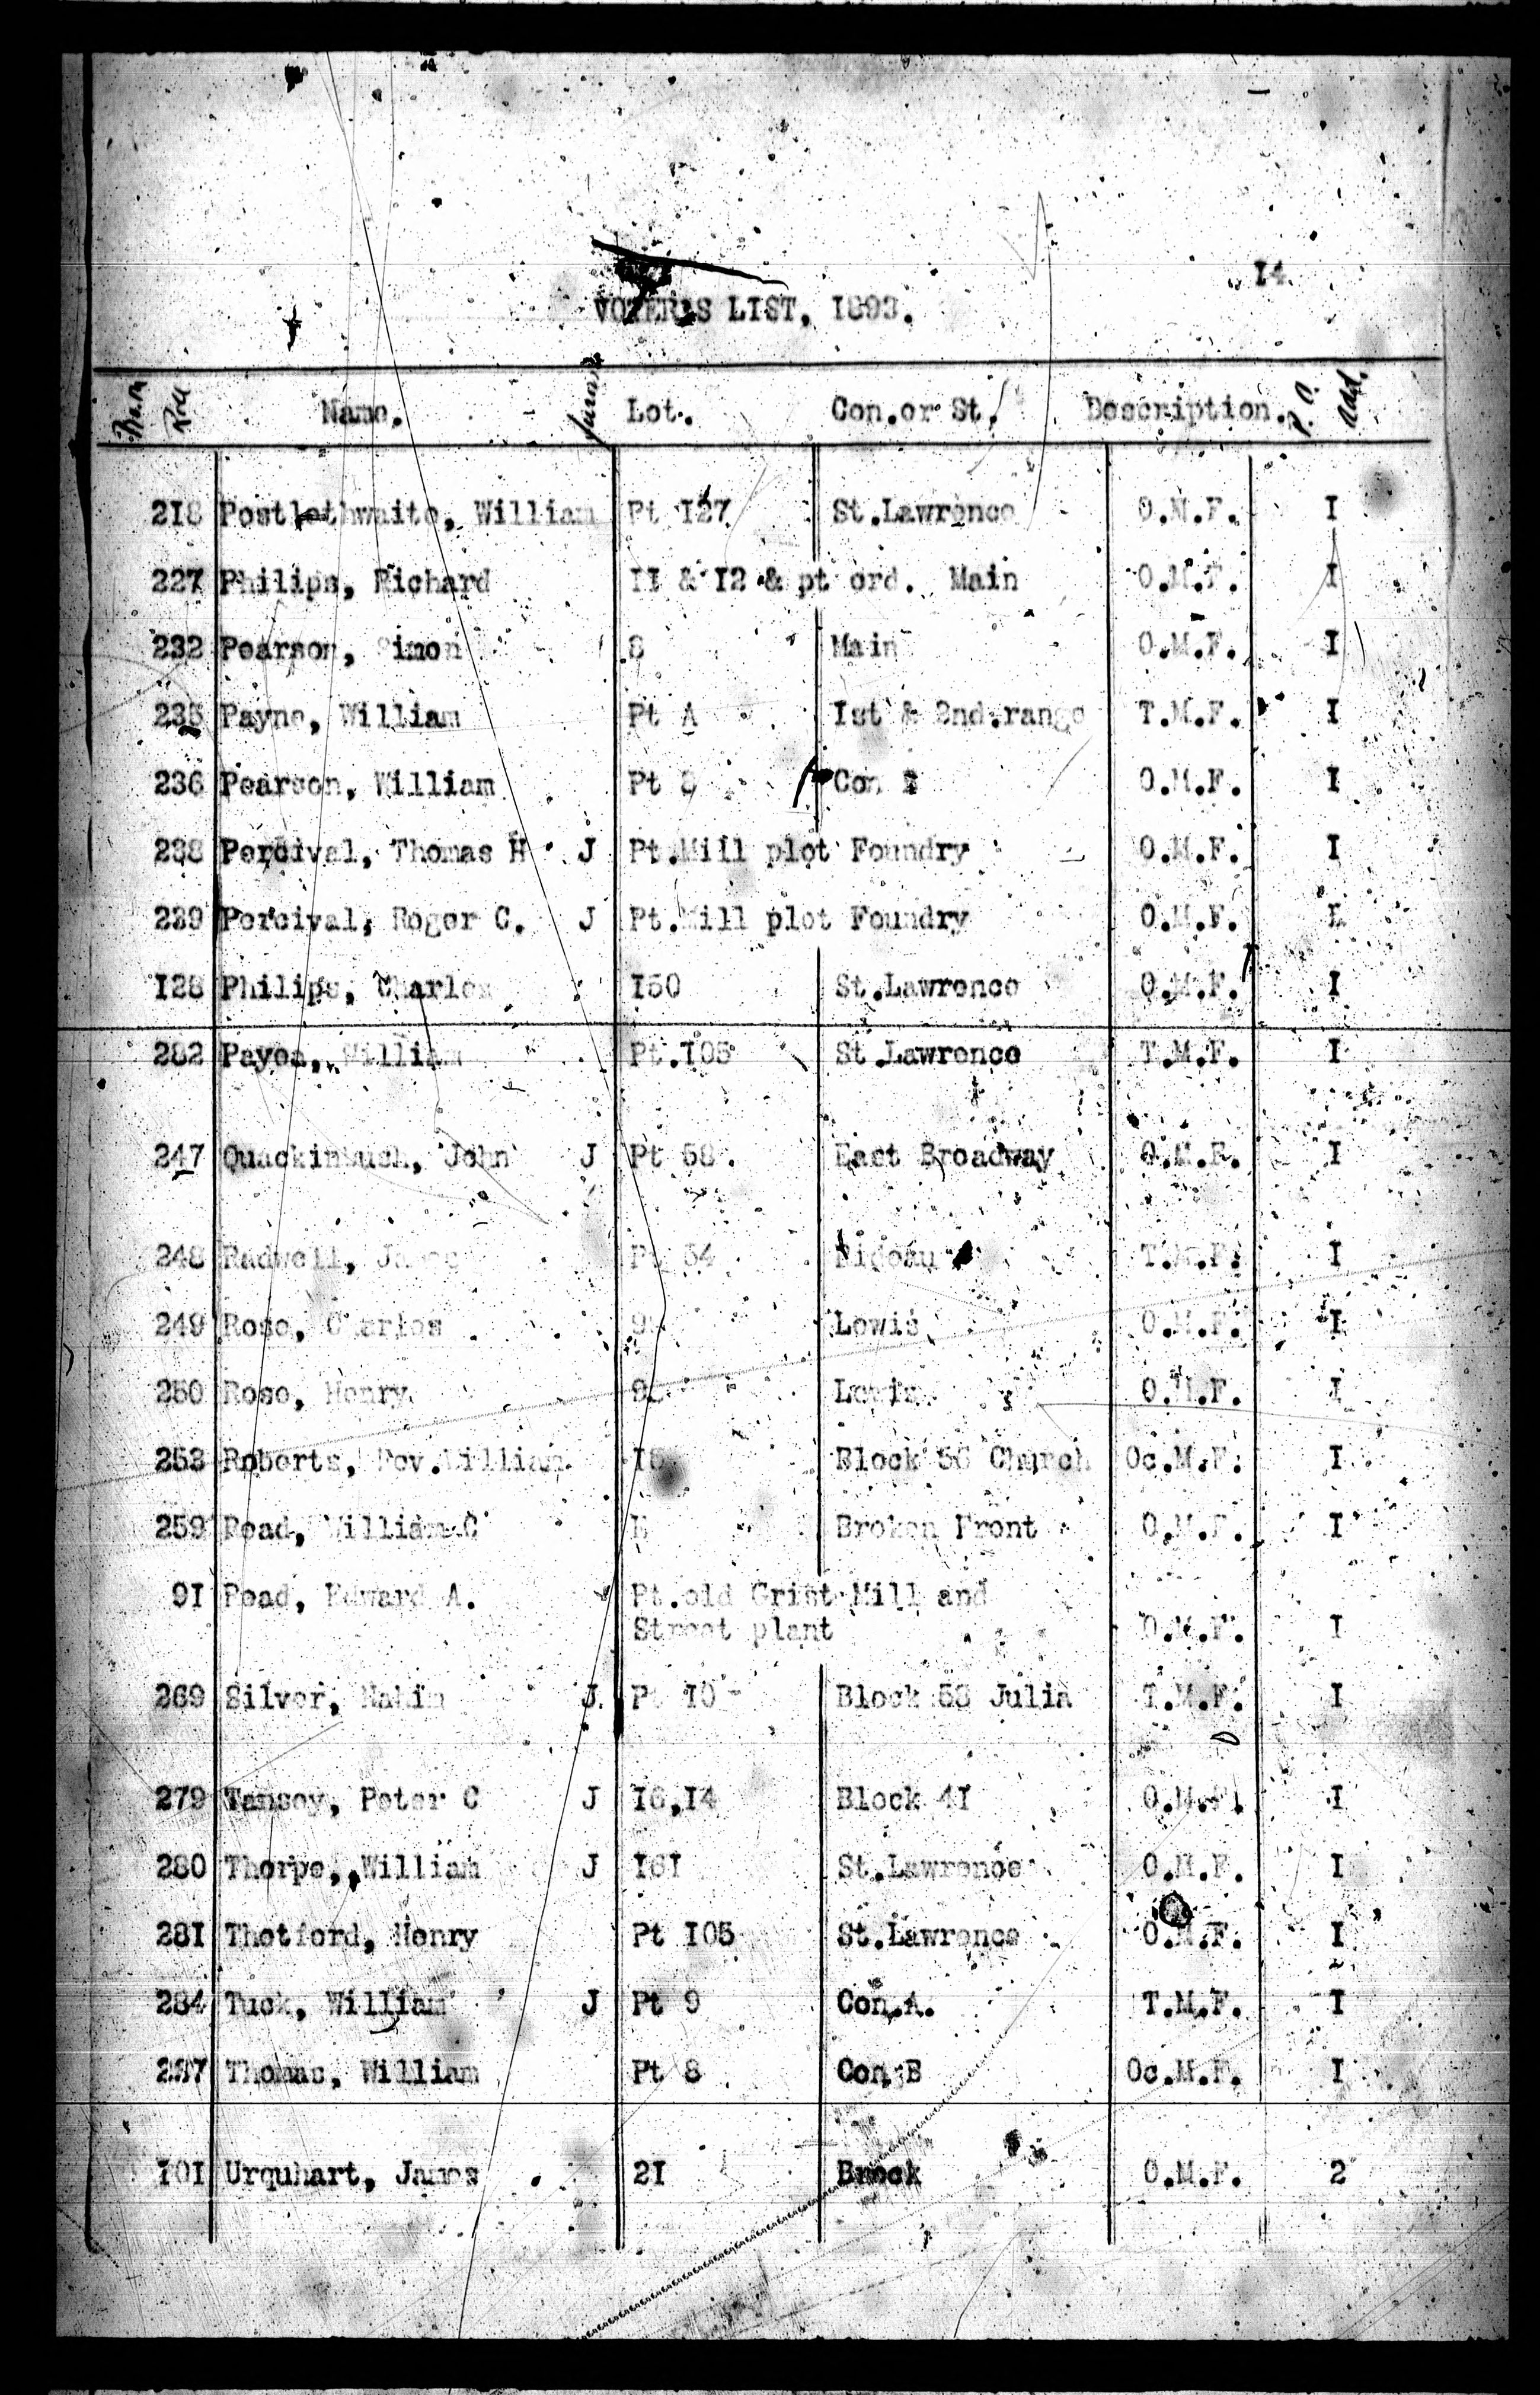 14
VOTER'S LIST, 1893.
No. in Roll Name. Juror Lot. Con.or St. Description. P.O. Add.
218 Postlethwaite, William Pt 127 St.Lawrence O.M.F. I
227 Philips, Richard II & I2 & pt ord. Main O.M.F. I
232 Pearson, Simon 8 Main O.M.F. I
235 Payne, William Pt A Ist & 2nd.range T.M.F. I
236 Pearson, William Pt 8 Con O.M.F. I
238 Percival, Thomas H. J Pt.Mill plot Foundry O.M.F. I
239 Percival, Roger C. J Pt.Mill plot Foundry O.M.F. I
I28 Philips, Charles I50 St.Lawrence O.M.F. I
282 William Pt.I05 St.Lawrence T.M.F. I
247 Quackinbush, John J Pt 58. East Broadway O.M.F. I
248 Radwell, James Pt 54 Rideau T.M.F. I
249 Rose, Charles Lewis O.M.F. I
250 Rose, Henry Lewis O.M.F. I
252 Roberts, Rev.William Block 56 Church Oc.M.F. I
259 Read, William C Broken Front O.M.F. I
9I Read, Edward A. J Pt.old Grist Mill and
Street plant O.M.F. I
269 Silver, J. Pt I0 Block 53 Julia T.M.F. I
279 Tansey, Peter C J I6,I4 Block 4I O.M.F. I
280 Thorpe, William J I6I St.Lawrence O.M.F. I
28I Thetford, Henry Pt I05 St.Lawrence O.M.F. I
284 Tuck, William J Pt 9 Con.A. T.M.F. I
287 Thomas, William Pt 8 Con.B Oc.M.F. I
I0I Urquhart, James 2I Brock O.M.F. 2